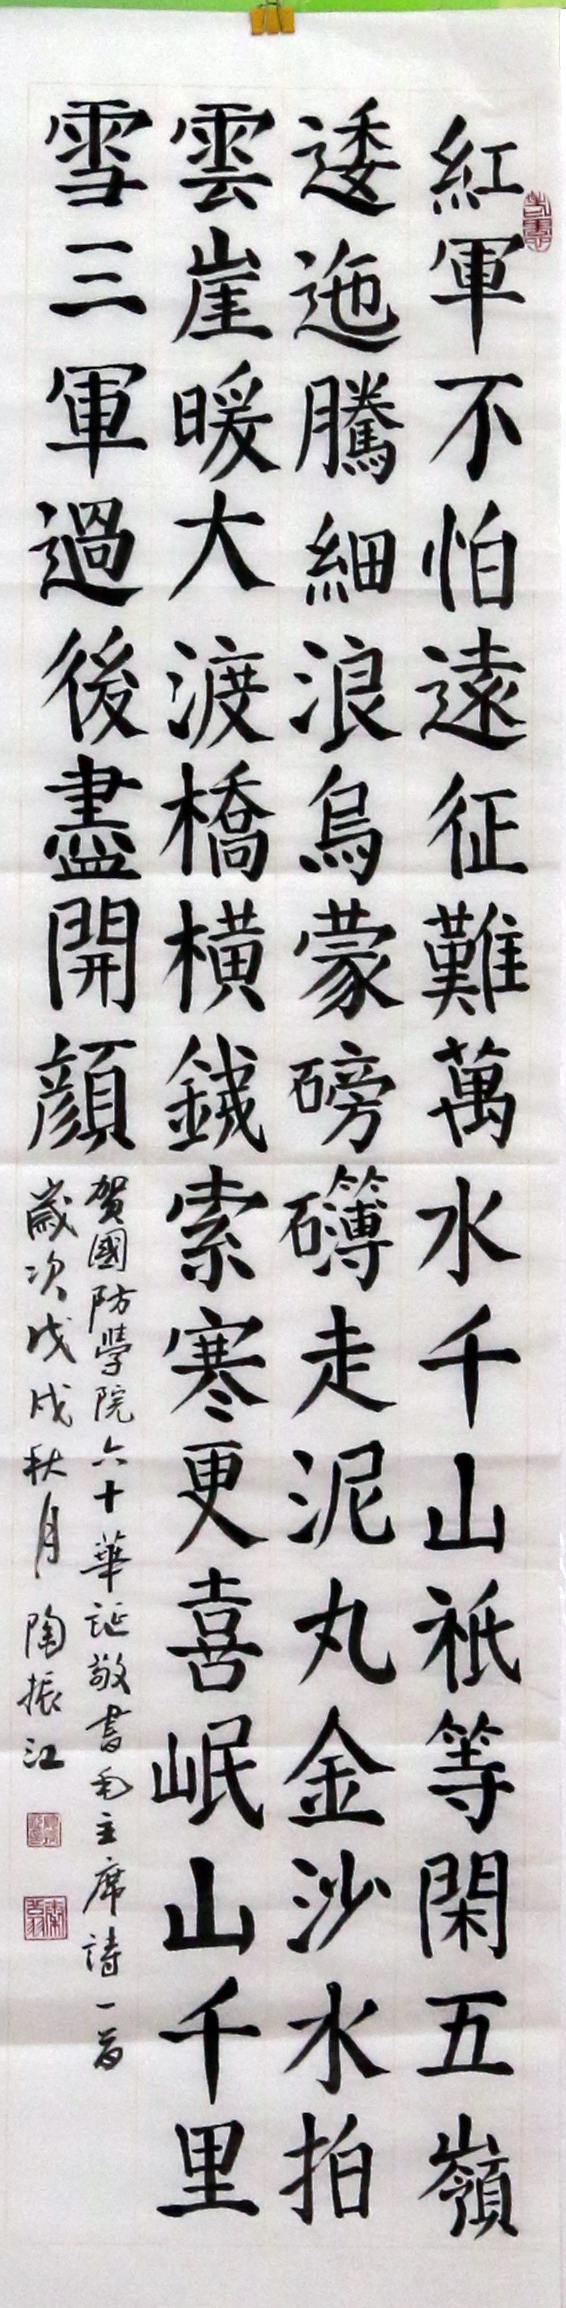 紅軍不怕遠征難萬水千山衹等閑五嶺
逶迤騰細浪烏蒙磅礴走泥丸金沙水拍
雲崖暖大渡橋橫鐵索寒更喜岷山千里
雪三軍過後盡開顔
賀國防學院六十華誕敬書毛主席詩一首
歲次戊戌秋月陶振江